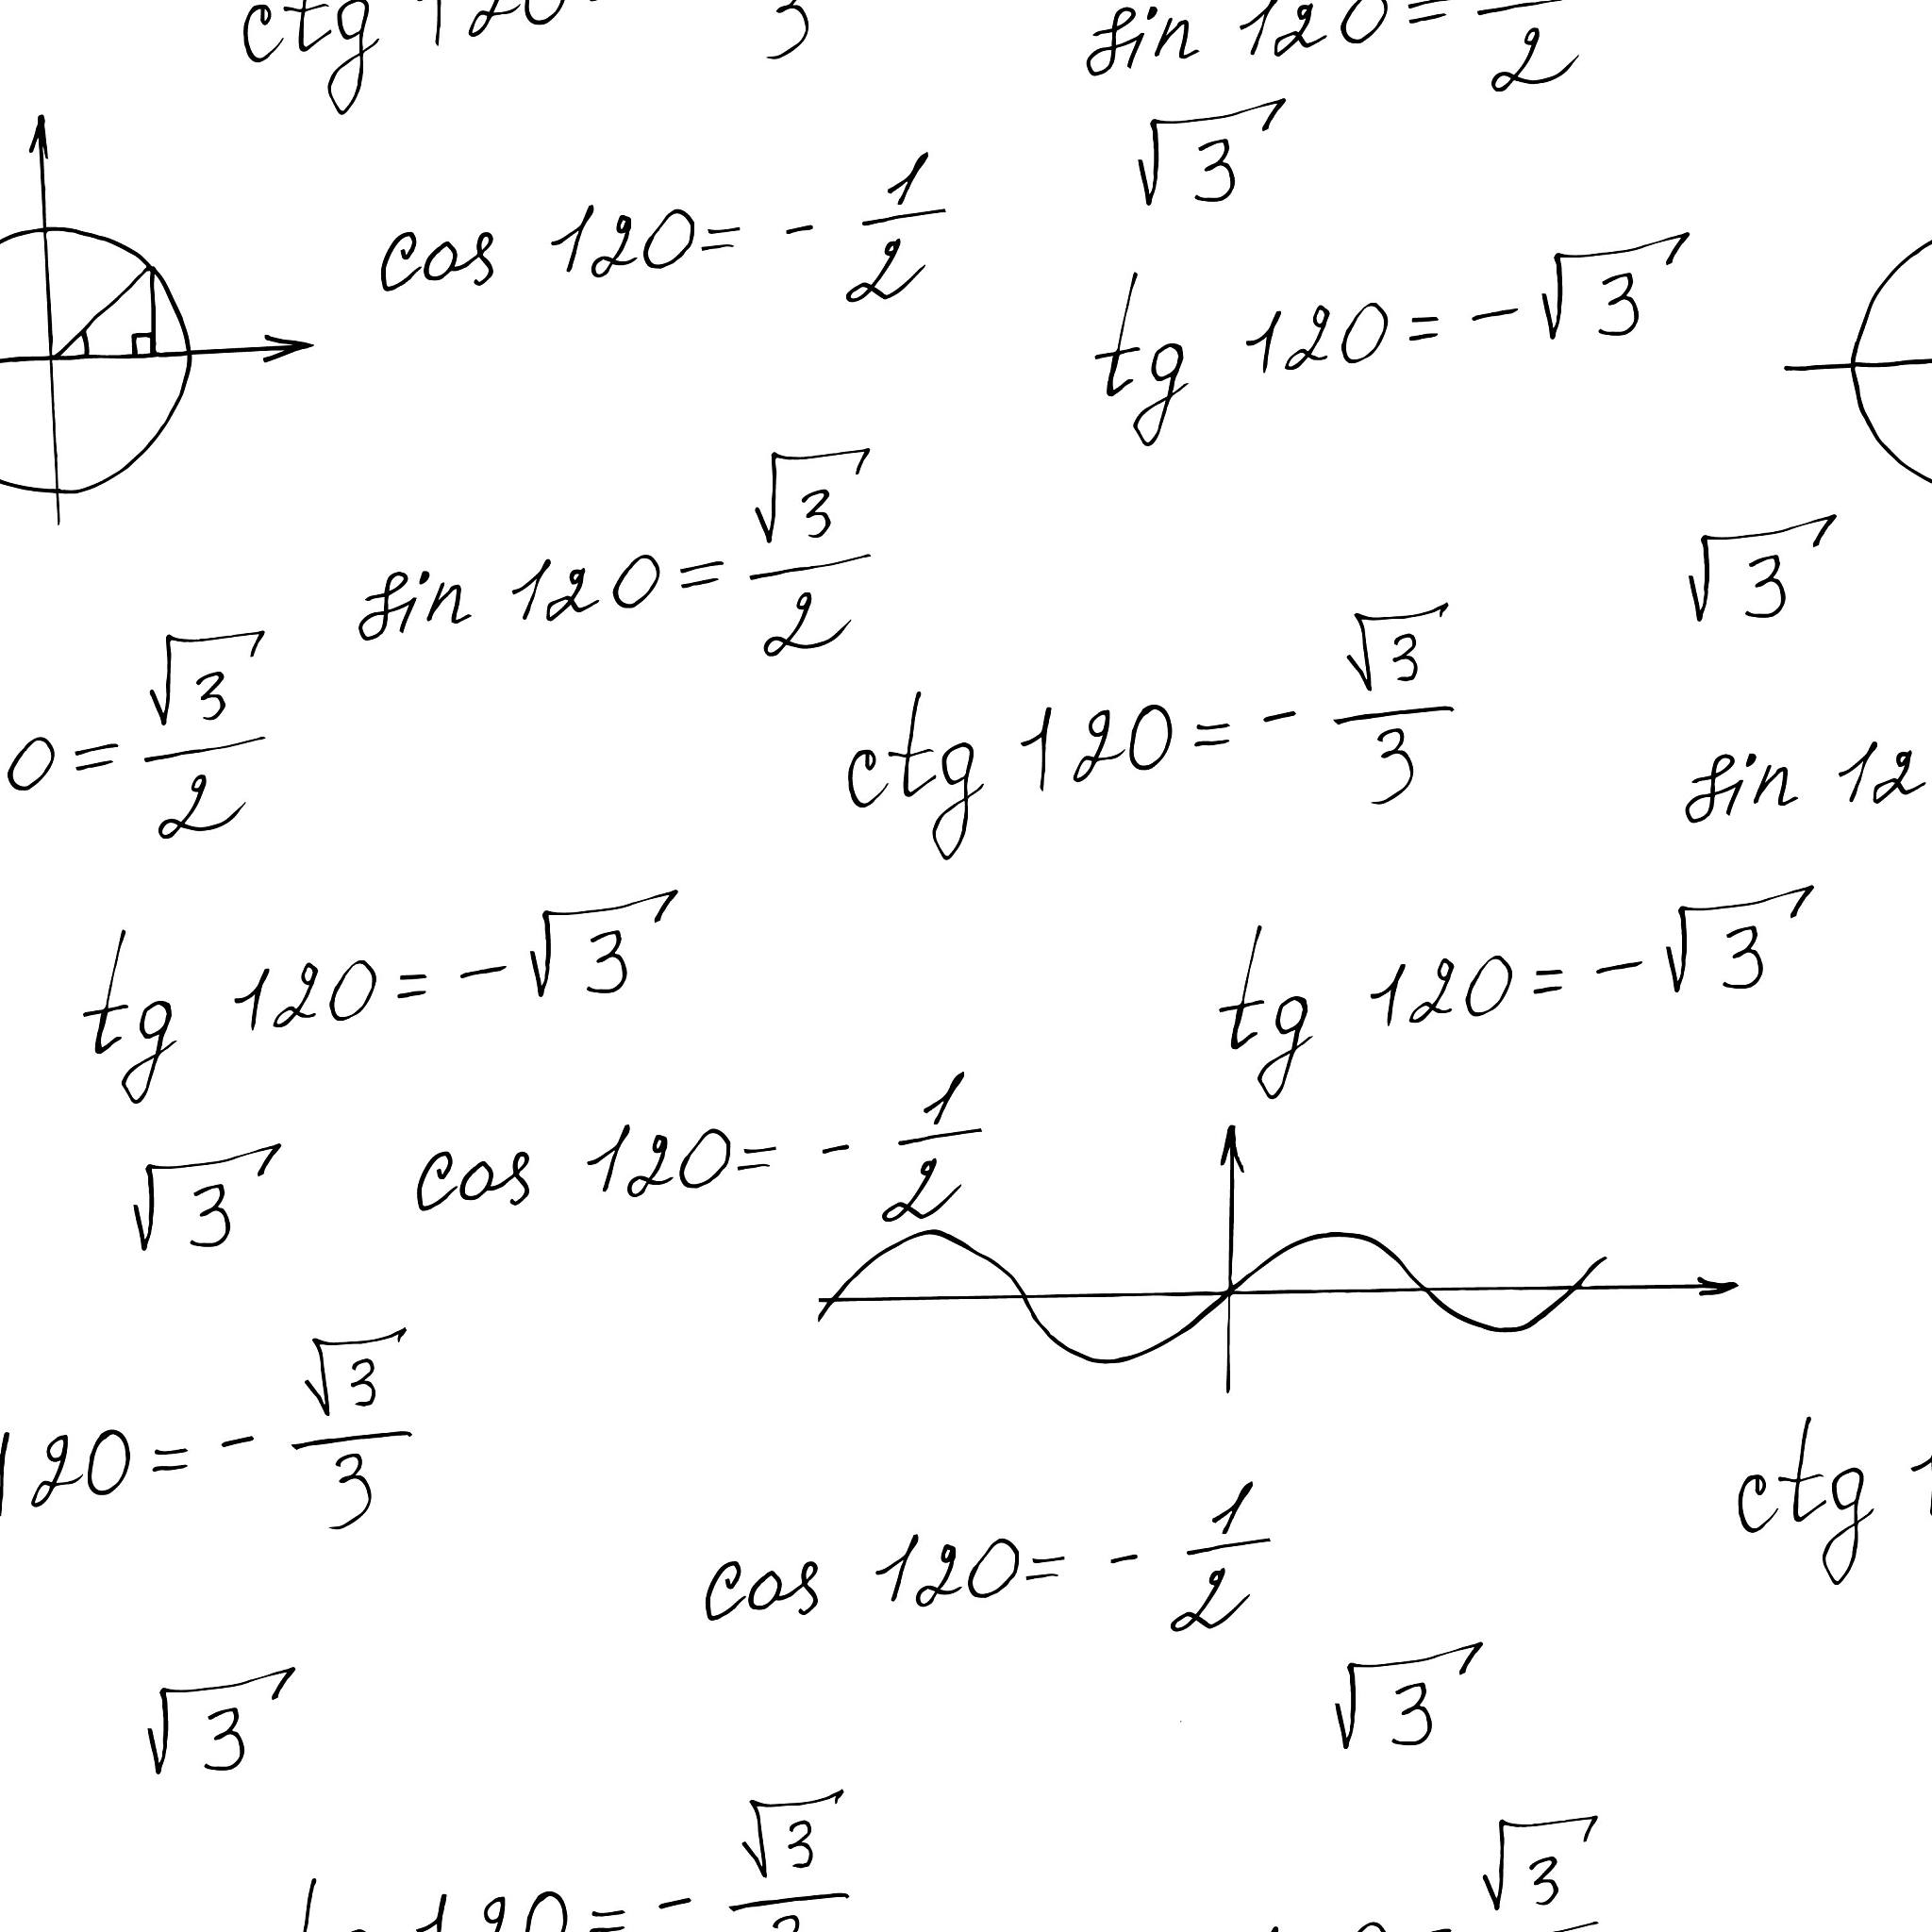 ctg 120
3
sin 120=
2
√3
cos 120= - 1/2
tg 120= -√3
sin 120= √3/2
√3
0= √3/2
ctg 120= - √3/3
sin 12
tg 120= -√3
tg 120= -√3
cos 120= - 1/2
√3
120= - √3/3
ctg 1
cos 120= - 1/2
√3
√3
120= - √3
√3